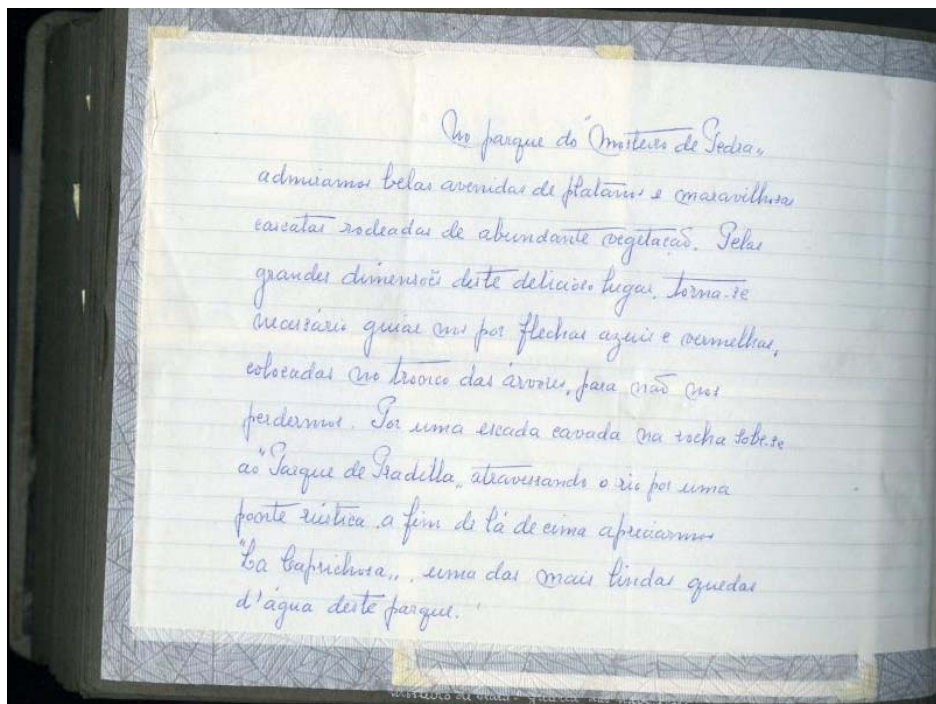 No parque do "Mosteiro de Piedra„
admiramos belas avenidas de platanos e maravilhosas
cascatas rodeadas de abundante vegetação. Pelas
grandes dimensões deste delicioso lugar, torna-se
necessário guiar-nos por flechas azuis e vermelhas,
colocadas no tronco das árvores, para não nos
perdermos. Por uma escada cavada na rocha sobe-se
ao "Parque de Pradilla„ atravessando o rio por uma
ponte rústica, a fim de lá de cima apreciarmos
"La Caprichosa„, uma das mais lindas quedas
d'água deste parque.